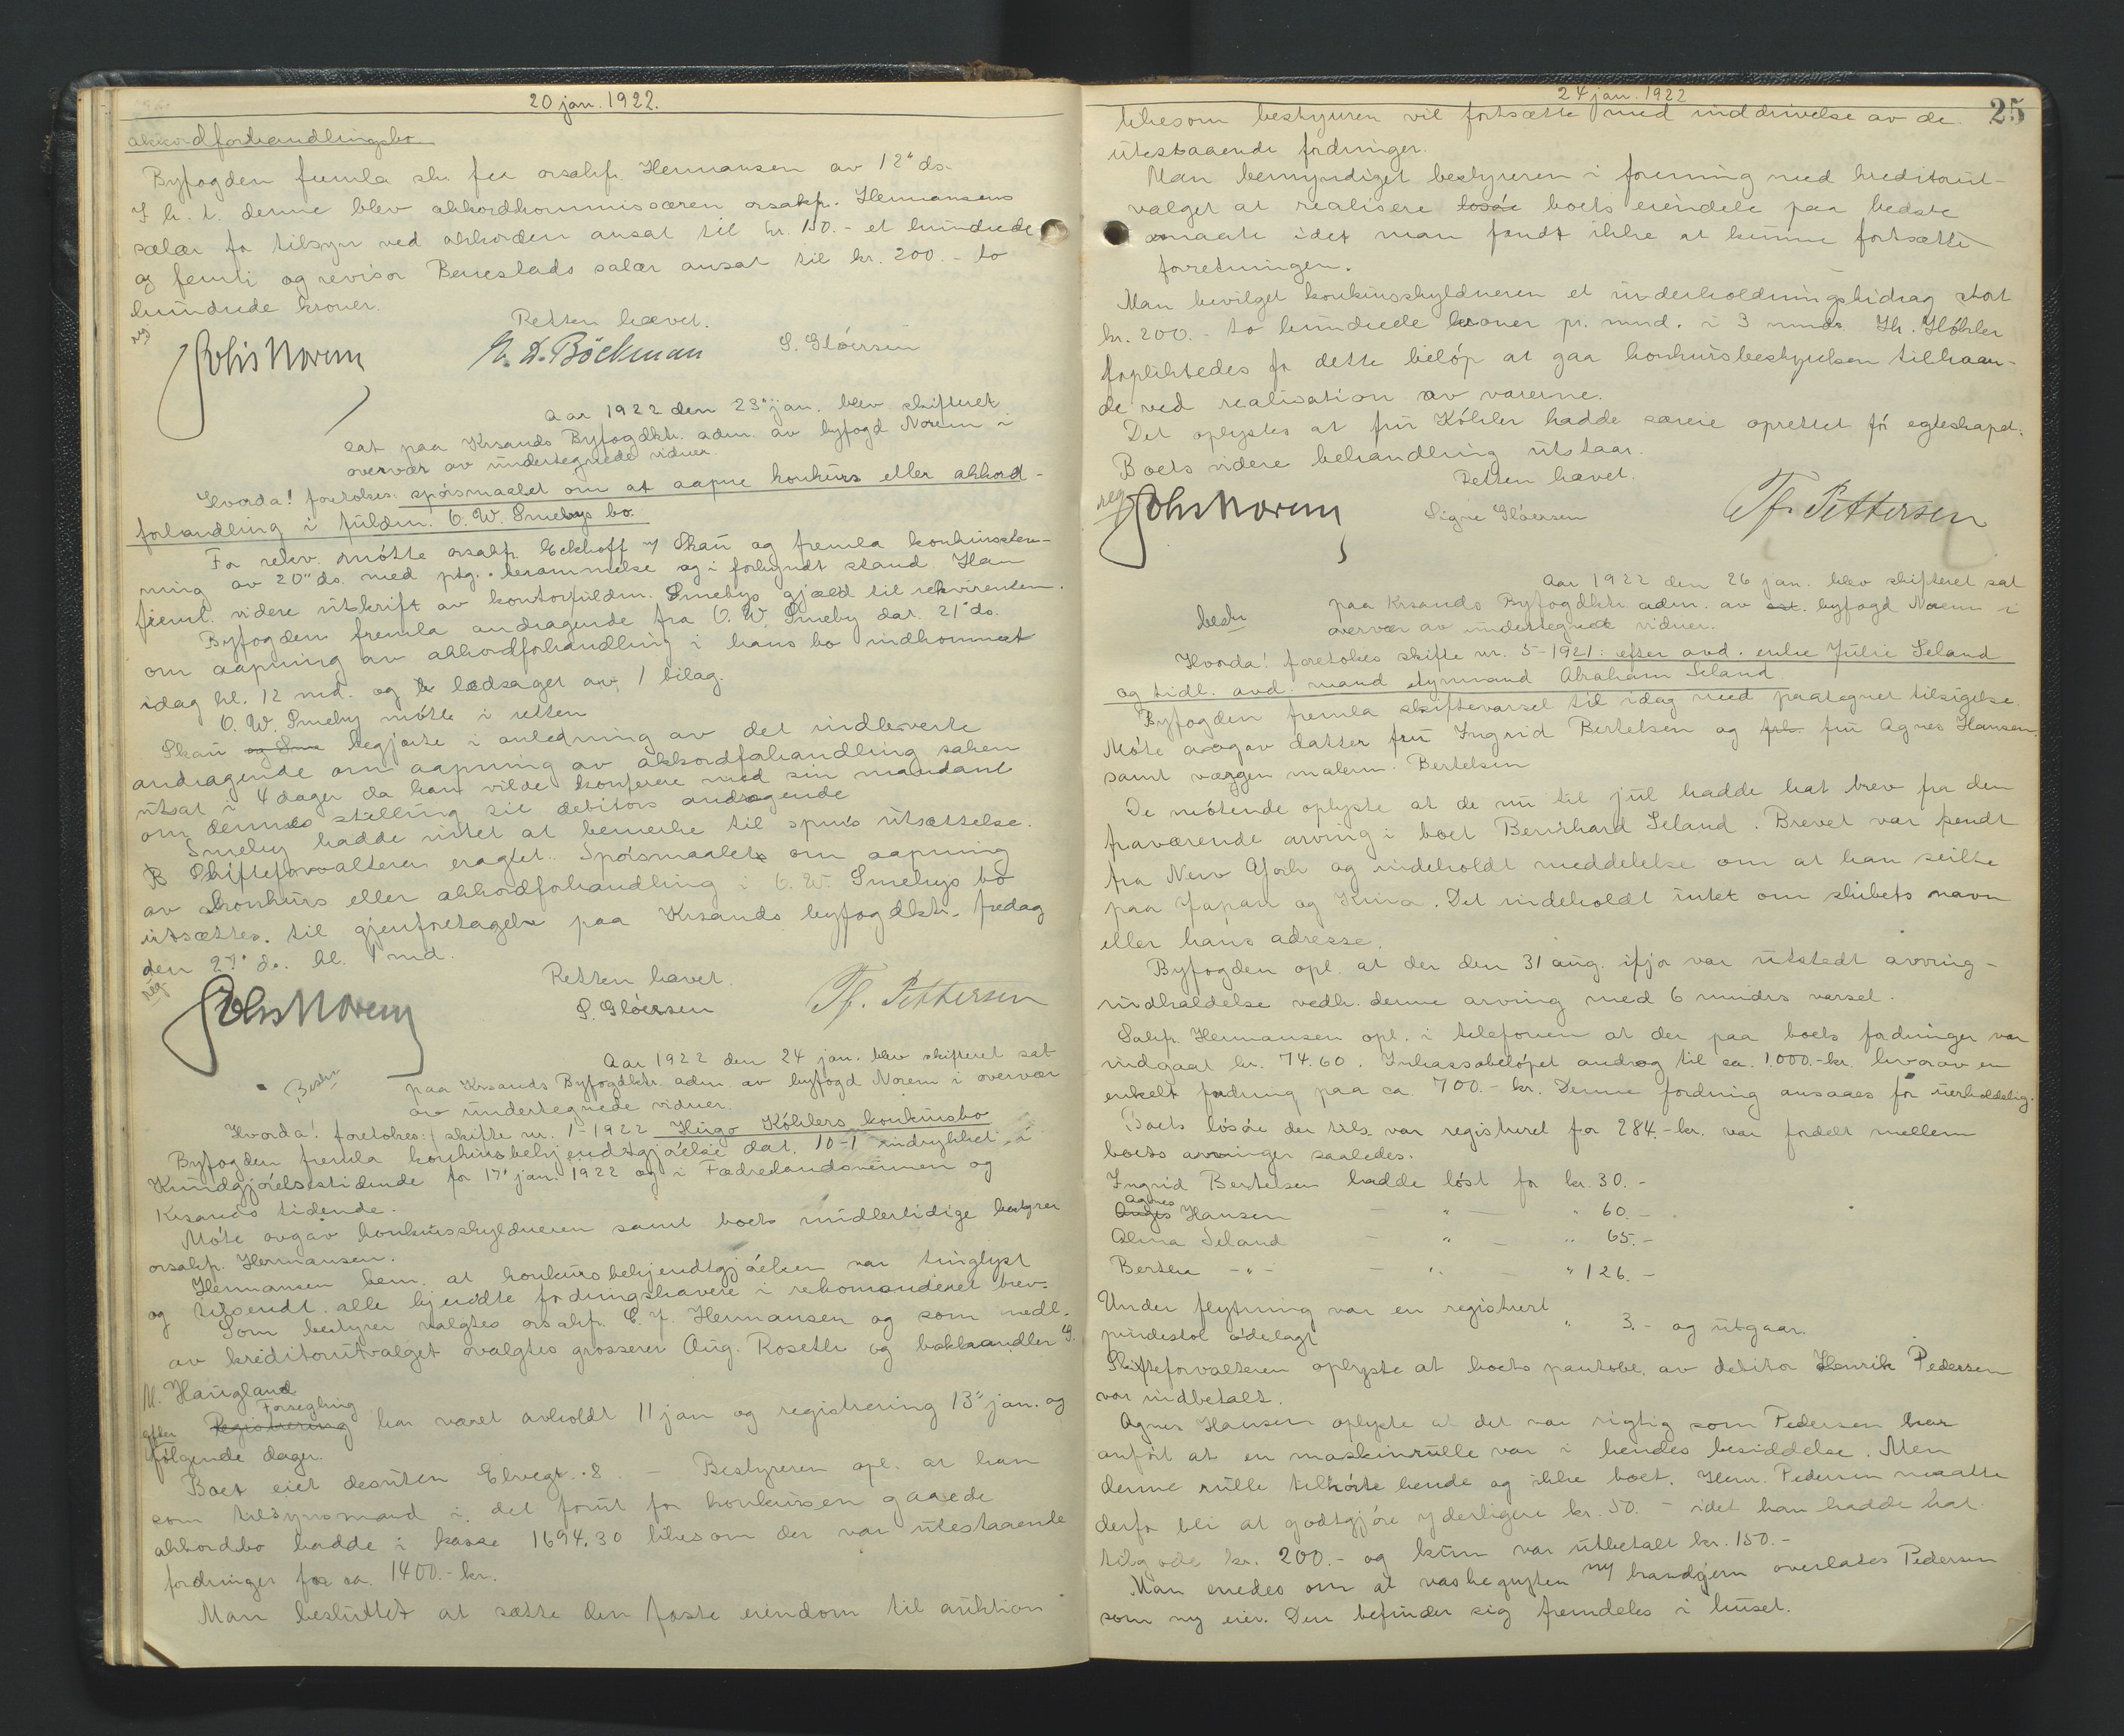 20 jan. 1922.
akkordforhandlingsbo
Byfogden fremla skr. fra orsakfr. Hermansen av 12' ds.
I h. t. denne blev akkordkommissæren orsakfr. Hermansens
salær for tilsyn ved akkorden ansat til kr. 150.- et hundrede
og femti og revisor Bernestads salær ansat til kr. 200.- to
hundrede kroner.
reg
Retten hævet.
Johs Norem
N. D. Böckman
S. Glöersen
Aar 1922 den 23' jan. blev skifteret
sat paa Krsands Byfogdktr. adm. av byfogd Norem i
overvær av undertegnede vidner.
Hvorda! foretokes: spörsmaalet om at aapne konkurs eller akkord-
forhandling i fuldm. O. W. Smebys bo.
For rekv. mötte orsakfr. Eckhoff v/ Skau og fremla konkursbegjæ-
ring av 20" ds. med ptg. berammelse og i forkyndt stand. Han
freml. videre utskrift av kontorfuldm. Smebys gjæld til rekvirenten.
Byfogden fremla andragende fra O. W. Smeby dat. 21' ds.
om aapning av akkordforhandling i hans bo indkommet
idag kl. 12 md. og ledsaget av 1 bilag.
O. W. Smeby mötte i retten
Skau og Sme begjærte i anledning av det indleverte
andragende om aapning av akkordforhandling saken
utsat i 4 dager da han vilde konferere med sin mandant
om dennes stilling til debitors andragende
Smeby hadde intet at bemerke til spm's utsættelse.
Skifteforvalteren eragtet: Spörsmaalet om aapning
av konkurs eller akkordforhandling i O. W. Smebys bo
utsættes til gjenforetagelse paa Krsands byfogdktr. fredag
den 27' ds. kl. 1 md.
reg
Retten hævet.
Johs Norem
S. Glöersen
Tf. Pettersen
Aar 1922 den 24 jan. blev skifteret sat
Beskr
paa Krsands Byfogdktr. adm. av byfogd Norem i overvær
av undertegnede vidner.
Hvorda! foretokes: skifte nr. 1-1922 Hugo Köhlers konkursbo
Byfogden fremla konkursbekjendtgjörelse dat. 10-1 indrykket i
Kundgjörelsestidende for 17' jan. 1922 og i Fædrelandsvennen og
Krsands tidende.
Möte avgav konkursskyldneren samt boets midlertidige bestyrer
orsakfr. Hermansen.
Hermansen bem. at konkursbekjendtgjörelsen var tinglyst
og tilsendt alle kjendte fordringshavere i rekomanderet brev.
Som bestyrer valgtes orsakfr. C. J. Hermansen og som medl.
av kreditorutvalget valgtes grosserer Aug. Roseth og bokhandler G.
M. Haugland
Forsegling
Registrering har været avholdt 11 jan og registrering 13" jan. og
efter
følgende dager.
Boet eiet desuten Elvegt. 8. - Bestyreren opl. at han
som tilsynsmand i det forut for konkursen gaaede
akkordbo hadde i kasse 1694.30 likesom der var utestaaende
fordringer for ca. 1400.- kr.
Man besluttet at sætte den faste eiendom til auktion
24 jan. 1922
25
likesom bestyreren vil fortsætte med inddrivelse av de
utestaaende fordringer.
Man bemyndiget bestyreren i forening med kreditorut-
valget at realisere løsøre boets eiendele paa bedste
maate idet man fandt ikke at kunne fortsætte
forretningen.
Man bevilget konkursskyldneren et underholdningsbidrag stort
kr. 200.- to hundrede kroner pr. mnd. i 3 mndr. Hr. Köhler
forpliktedes for dette belöp at gaa konkursbestyrelsen tilhaan-
de ved realisation av varerne.
Det oplystes at fru Köhler hadde særeie oprettet för egteskapet.
Boets videre behandling utstaar.
reg
Retten hævet.
Johs Norem
Signe Glöersen
Tf. Pettersen
Aar 1922 den 26 jan. blev skifteret sat
beskr
paa Krsands Byfogdktr. adm. av byfogd Norem i
overvær av undertegnede vidner.
Hvorda! foretokes skifte nr. 5-1921: efter avd. enke Julie Seland
og tidl. avd. mand styrmand Abraham Seland.
Byfogden fremla skiftevarsel til idag med paategnet tilsigelse.
Möte avgav datter fru Ingrid Bertelsen og fru Agnes Hansen.
samt væggen malerm. Bertelsen
De mötende oplyste at de nu til jul hadde hat brev fra den
fraværende arving i boet Bernhard Seland. Brevet var sendt
fra New York og indeholdt meddelelse om at han seilte
paa Japan og Kina. Det indeholdt intet om skibets navn
eller hans adresse.
Byfogden opl. at der den 31 aug. ifjor var utstedt arving-
indkaldelse vedk. denne arving med 6 mndrs varsel.
Sakfr. Hermansen opl. i telefonen at der paa boets fordringer var
indgaat kr. 74.60. Inkassobelöpet androg til ca. 1000.- kr. hvorav en
enkelt fordring paa ca. 700.- kr. Denne fordring ansaaes for uerholdelig.
Boets lösöre der tils. var registreret for 284.- kr. var fordelt mellem
boets arvinger saaledes.
Ingrid Bertelsen hadde löst for kr. 30.-
Agnes
Anges Hansen - " - " 60.-
Alma Seland - " - " 65.-
Bertha - " - - " - " 126.-
Under flytning var en registrert
pindestol ödelagt " 3.- og utgaar.
Skifteforvalteren oplyste at boets pantobl. av debitor Henrik Pedersen
var indbetalt.
Agnes Hansen oplyste at det var rigtig som Pedersen har
anfört at en maskinrulle var i hendes besiddelse. Men
denne rulle tilhörte hende og ikke boet. Henr. Pedersen maatte
derfor bli at godtgjöre yderligere kr. 50.- idet han hadde hat
tilgode kr. 200.- og kun var utbetalt kr. 150.-
Man enedes om at vaskegryten m/ handjern overlates Pedersen
som ny eier. Den befinder sig fremdeles i huset.